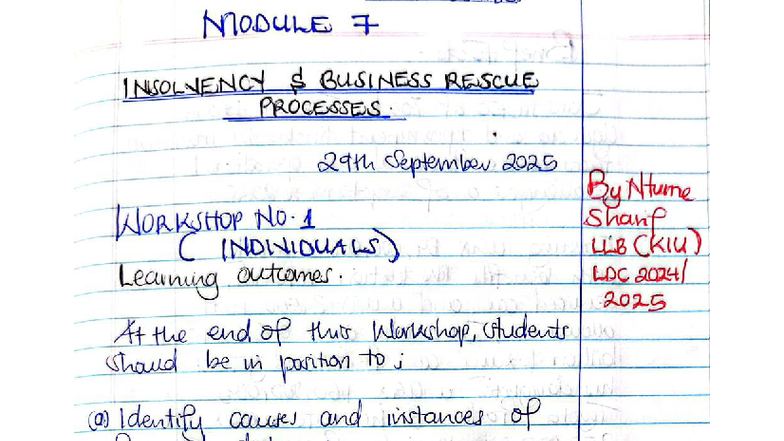 MODULE 7
INSOLVENCY & BUSINESS RESCUE
PROCESSES.
29th September 2025
WORKSHOP NO. 1
( INDIVIDUALS)
Learning outcomes.
At the end of this Workshop, students
should be in position to ;
(a) Identify causes and instances of
By Ntume
Sharif
LLB (KIU)
LDC 2024/
2025